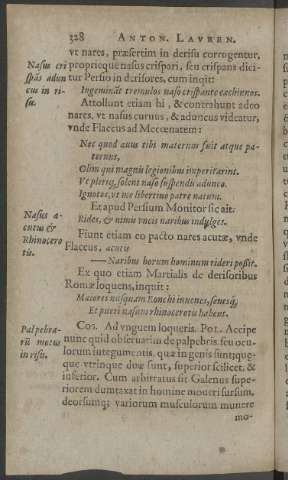 328 ANTON. LAVREN.
vt nares, præsertim in derisu corrogentur,
Nasus cri
proprieque nasus crispari, seu crispans dici-
spãs adun
tur Persio in derisores, cum inqit:
cus in ri-
Ingeminãt tremulos naso crispante cachinnos.
su.
Attollunt etiam hi, & contrahunt adeo
nares, vt nasus curuus, & aduncus videatur,
vnde Flaccus ad Mecœnatem:
Nec quod auus tibi maternus fuit atque pa-
ternus,
Olim qui magnis legionibus imperitarint.
Vt plerique, solent naso suspendis adunco.
Ignotos, vt me libertino patre natum.
Et apud Persium Monitor sic ait.
Nasus a-
Rides, & nimis vncis naribus indulges.
cutus &
Fiunt etiam eo pacto nares acutæ, vnde
Rhinocero
Flaccus, acutis
tis.
—Naribus horum hominum rideri possit.
Ex quo etiam Martialis de derisoribus
Romæ loquens, inquit:
Maiores nusquam Ronchi iuuenes, senesq́;
Et pueri nasum rhinocerotis habent.
Palpebra-
Cos. Ad vnguem loqueris. Pol. Accipe
rũ motus
nunc quid obseruatũ de palpebris seu ocu-
in risu.
lorum integumentis, quæ in genis sunt; que-
que vtrinque duæ sunt, superior scilicet, &
inferior. Cum arbitratus sit Galenus supe-
riorem dumtaxat in homine moueri sursum,
deorsumq́; variorum musculorum munere
mo-